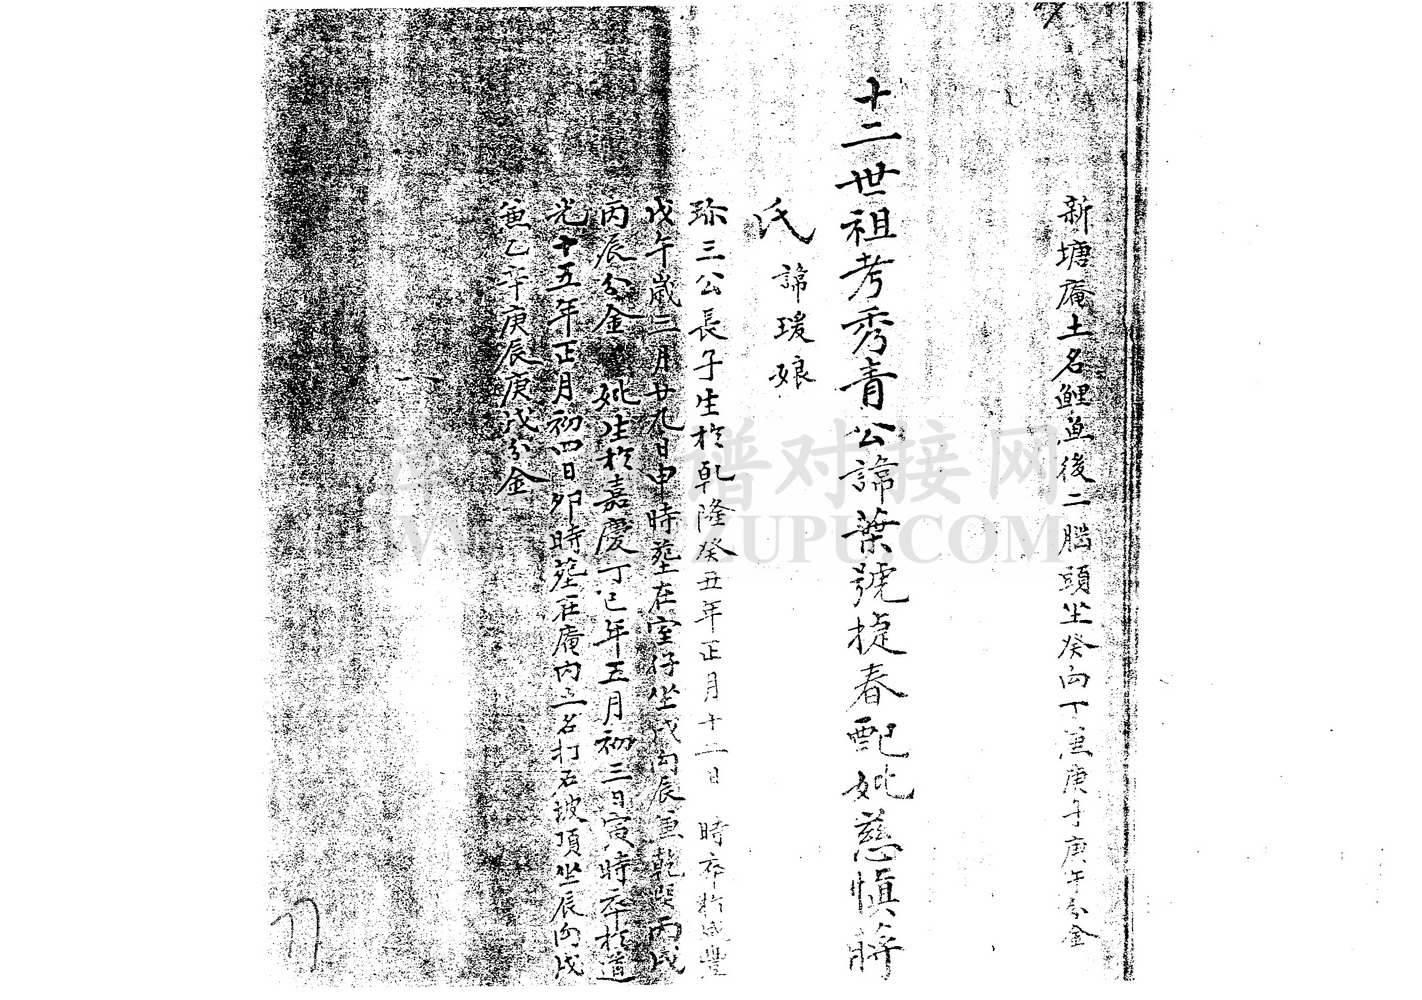 新塘庵土名鯉魚後二腦頭坐癸向丁兼庚子庚午分金
十二世祖考秀青公諱葉號捷春配妣慈慎蔣
氏 諱瑗娘
珎三公長子生於乾隆癸丑年正月十二日 時卒於咸豐
戊午歲三月廿九日申時塟在室仔坐戌向辰兼乾巽丙戌
丙辰分金 妣生於嘉慶丁巳年五月初三日寅時卒於道
光十五年正月初四日卯時塟在庵內土名打石坡頂坐辰向戌
兼乙辛庚辰庚戌分金
譜对接网
WWW. ZUPU.COM
77